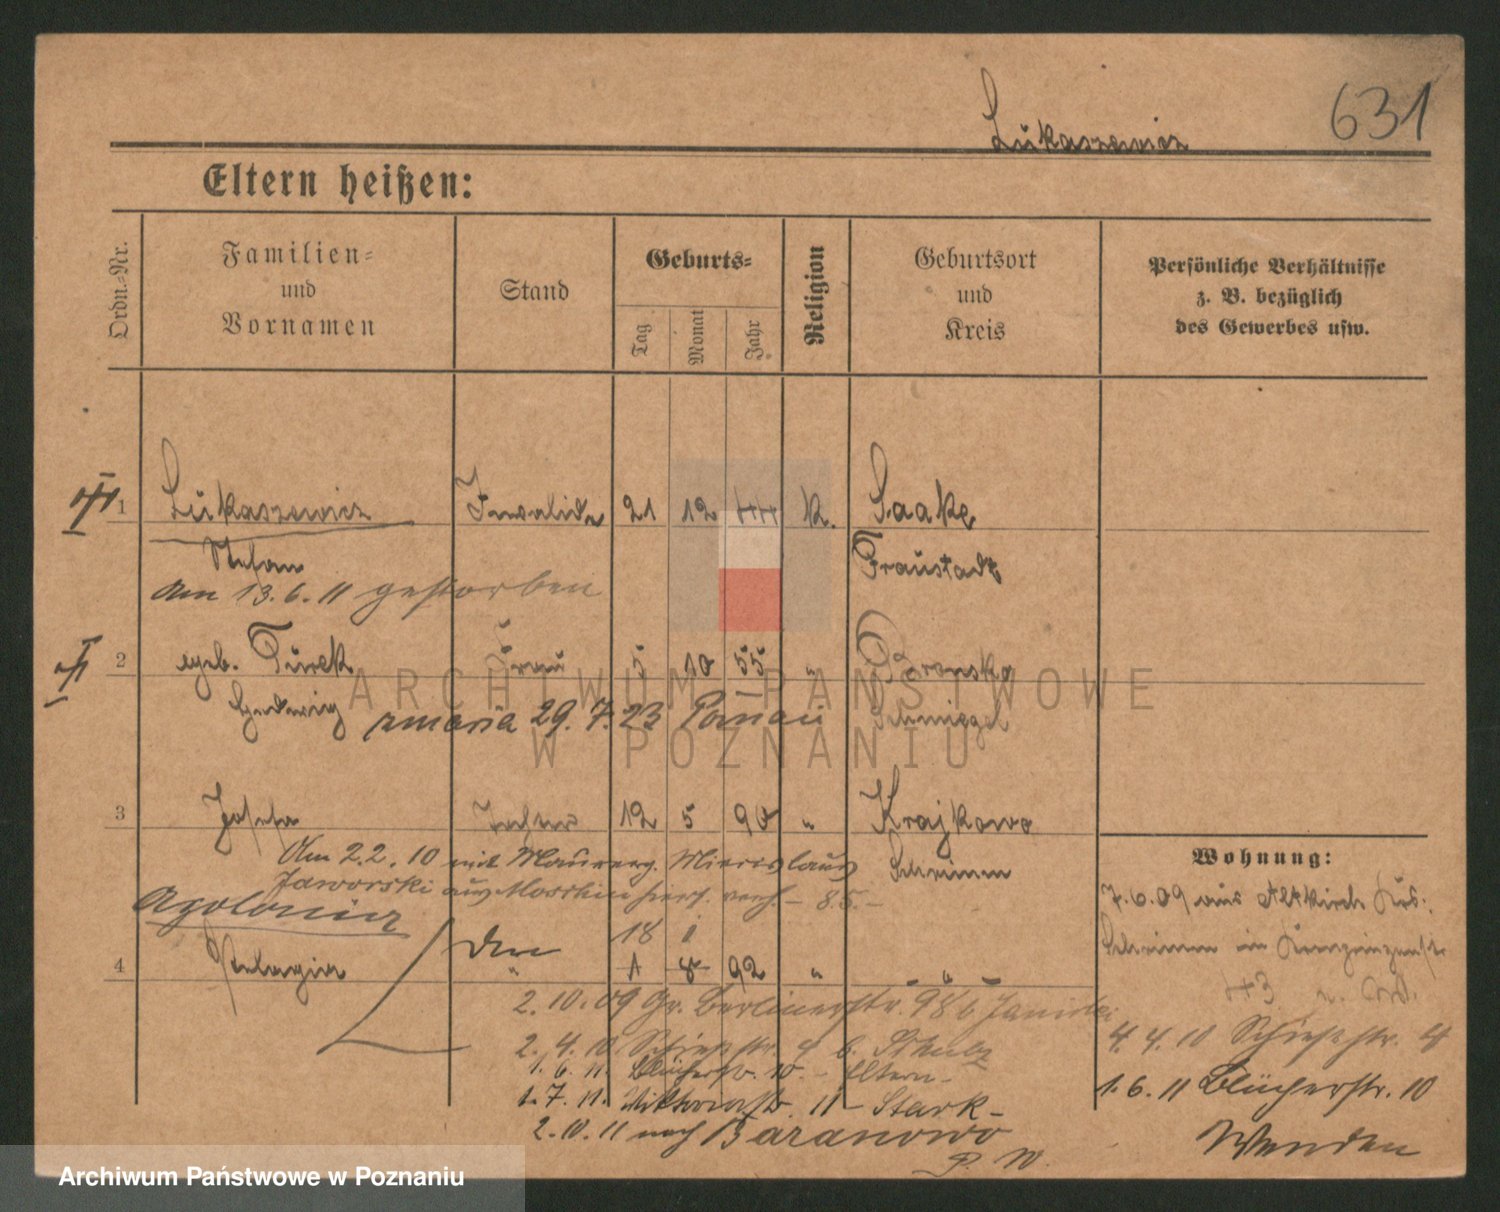 Lukaszewicz
631
Eltern heißen:
Ordn.-Nr.
Familien- und Vornamen
Stand
Geburts-
Tag
Monat
Jahr
Religion
Geburtsort und Kreis
Persönliche Verhältnisse
z. B. bezüglich
des Gewerbes usw.
1 Lukaszewicz Invalide 21 12 44 k. Saake
Stefan Fraustadt
am 13.6.11 gestorben
2 geb. Turek Frau 5 10 55 " Bronsko
Hedwig zmarła 29.7.23 Poznań Schmiegel
3 Josefa Tochter 12 5 90 " Krajkowo
Am 2.2.10 mit Maurerg. Miecislaus Schrimm
Jaworski aus Moschin hier verh. - 85. -
Apolonia
18 1
4 Pelagia " 1 8 92 " - " -
2.10.09 Gr. Berlinerstr. 98 b
2.4.10 Schießstr. 4 b. Schulz
1.6.11. Blücherstr. 10. - Eltern -
1.7.11. Viktoriastr. 11 - Stark -
2.10.11 nach Baranowo
P. W.
Wohnung:
7.6.09 aus Altkirch Krs.
Schrimm in Kronprinzenstr
43
4.4.10 Schießstr. 4
1.6.11 Blücherstr. 10
Wenden
ARCHIWUM PAŃSTWOWE
W POZNANIU
Archiwum Państwowe w Poznaniu